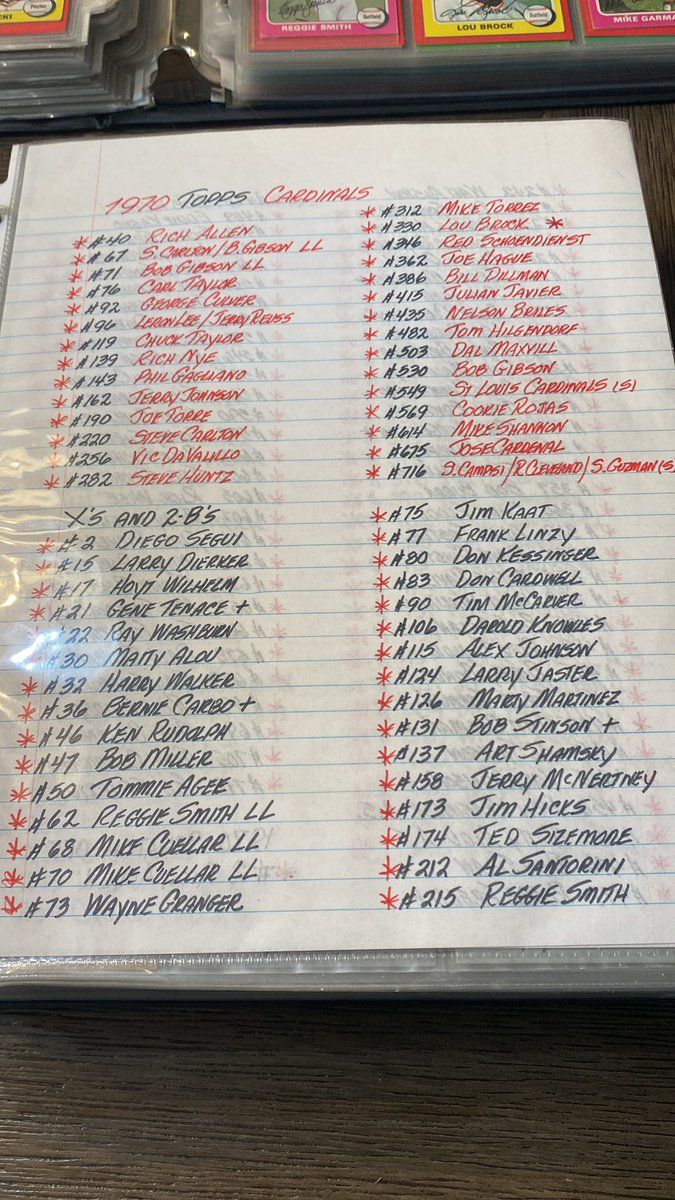 Pitcher
REGGIE SMITH
Outfield
LOU BROCK
Outfield
MIKE GARMA
1970 TOPPS CARDINALS
* #40 RICH ALLEN
* #67 S. CARLTON/B. GIBSON LL
* #71 BOB GIBSON LL
* #76 CARL TAYLOR
* #92 GEORGE CULVER
* #96 LERON LEE/JERRY REUSS
* #119 CHUCK TAYLOR
* #139 RICH NYE
* #143 PHIL GAGLIANO
* #162 JERRY JOHNSON
* #190 JOE TORRE
* #220 STEVE CARLTON
* #256 VIC DAVALILLO
* #282 STEVE HUNTZ
* #312 MIKE TORREZ
* #330 LOU BROCK *
* #346 RED SCHOENDIENST
* #362 JOE HAGUE
* #386 BILL DILLMAN
* #415 JULIAN JAVIER
* #435 NELSON BRILES
* #482 TOM HILGENDORF
* #503 DAL MAXVILL
* #530 BOB GIBSON
* #549 ST LOUIS CARDINALS (S)
* #569 COOKIE ROJAS
* #614 MIKE SHANNON
* #675 JOSE CARDENAL
* #716 S. CAMPISI/R. CLEVELAND/S. GUZMAN (S)
X'S AND 2-B'S
* #2 DIEGO SEGUI
* #15 LARRY DIERKER
* #17 HOYT WILHELM
* #21 GENE TENACE +
* #22 RAY WASHBURN
* #30 MATTY ALOU
* #32 HARRY WALKER
* #36 BERNIE CARBO +
* #46 KEN RUDOLPH
* #47 BOB MILLER
* #50 TOMMIE AGEE
* #62 REGGIE SMITH LL
* #68 MIKE CUELLAR LL
* #70 MIKE CUELLAR LL
* #73 WAYNE GRANGER
* #75 JIM KAAT
* #77 FRANK LINZY
* #80 DON KESSINGER
* #83 DON CARDWELL
* #90 TIM MCCARVER
* #106 DAROLD KNOWLES
* #115 ALEX JOHNSON
* #124 LARRY JASTER
* #126 MARTY MARTINEZ
* #131 BOB STINSON +
* #137 ART SHAMSKY
* #158 JERRY MCNERTNEY
* #173 JIM HICKS
* #174 TED SIZEMORE
* #212 AL SANTORINI
* #215 REGGIE SMITH